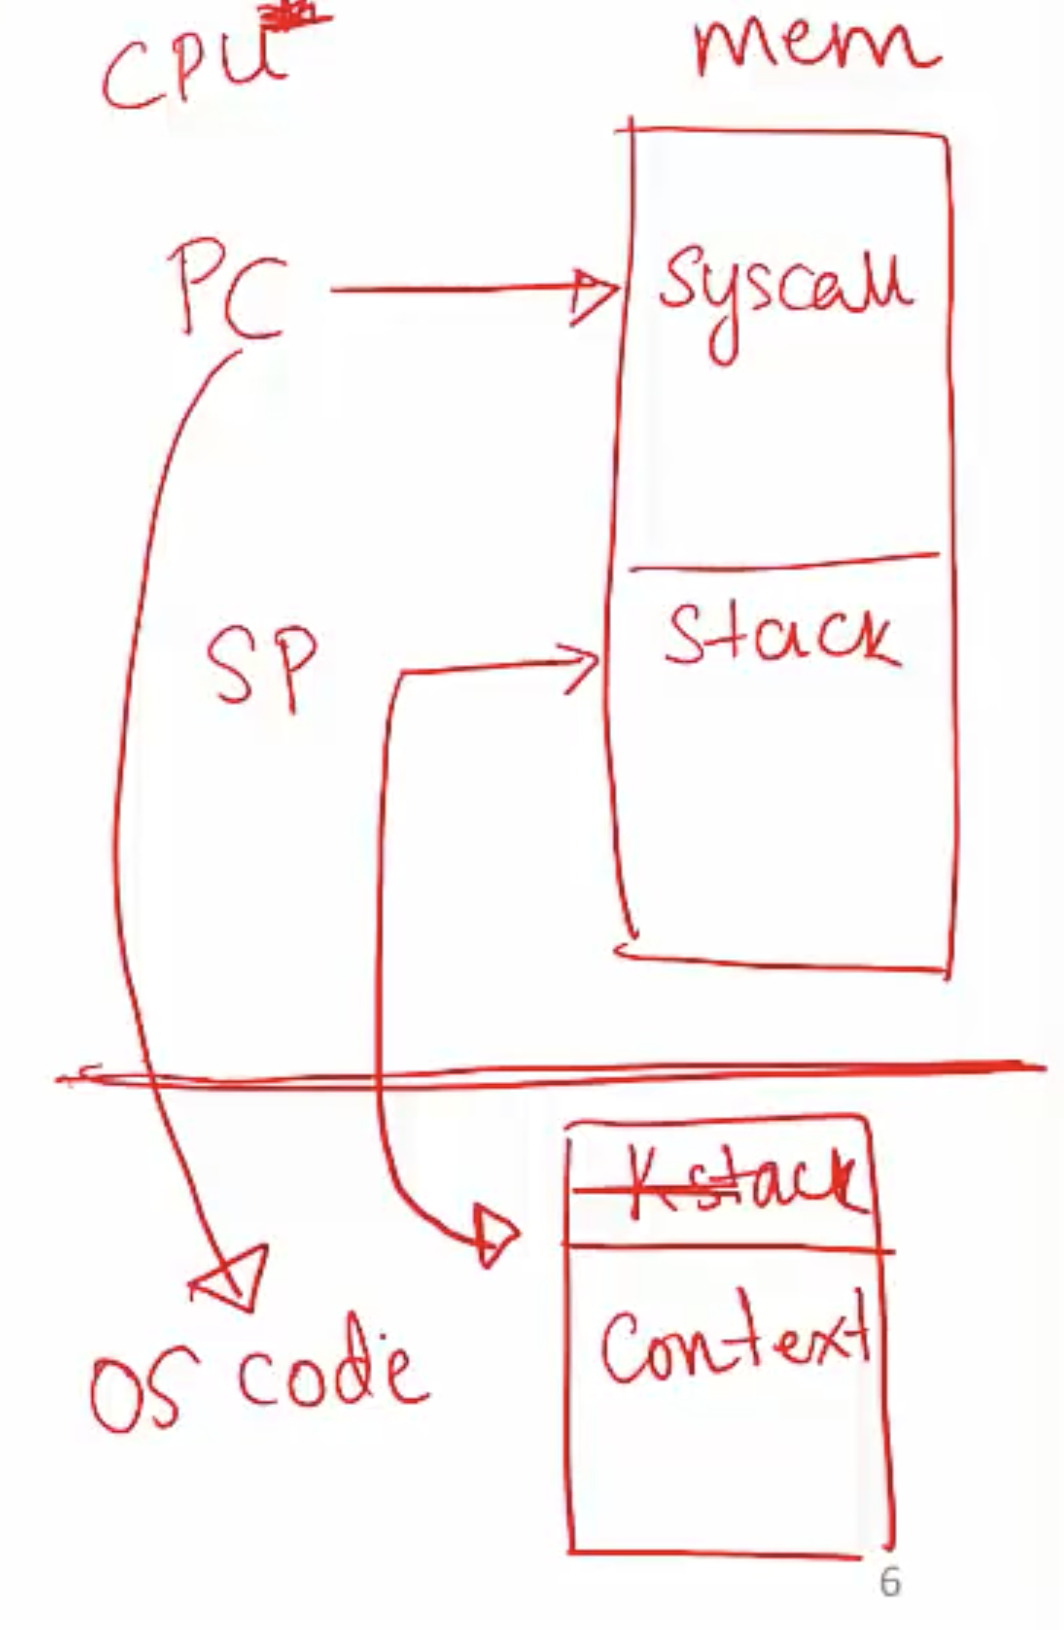 CPU
mem
PC
Syscall
SP
Stack
Kstack
Context
OS code
6